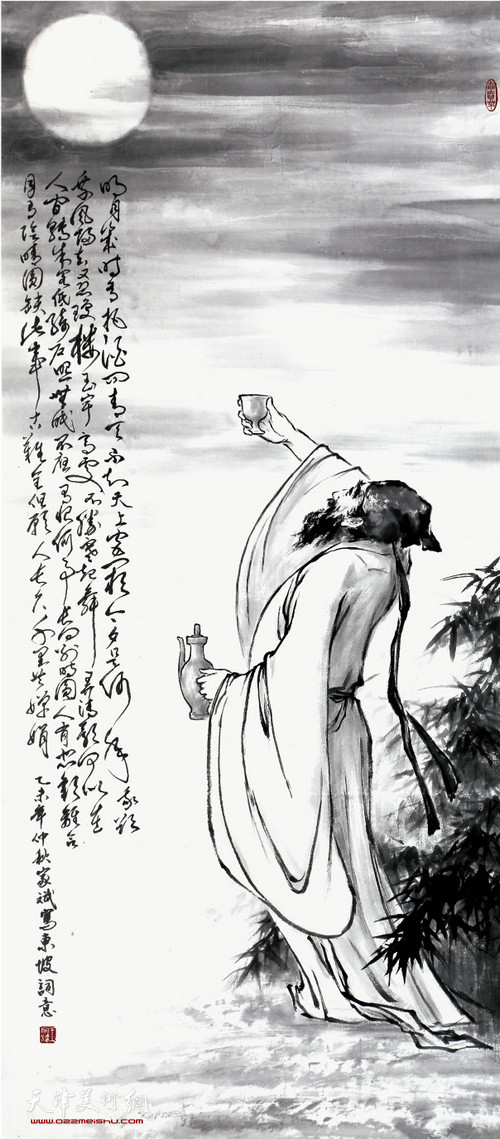 明月幾時有把酒問青天不知天上宮闕今夕是何年我欲
乘風歸去又恐瓊樓玉宇高處不勝寒起舞弄清影何似在
人間轉朱閣低綺戶照無眠不應有恨何事長向別時圓人有悲歡離合
月有陰晴圓缺此事古難全但願人長久千里共嬋娟 乙未年仲秋家斌寫東坡詞意
天津美術網
www.022meishu.com